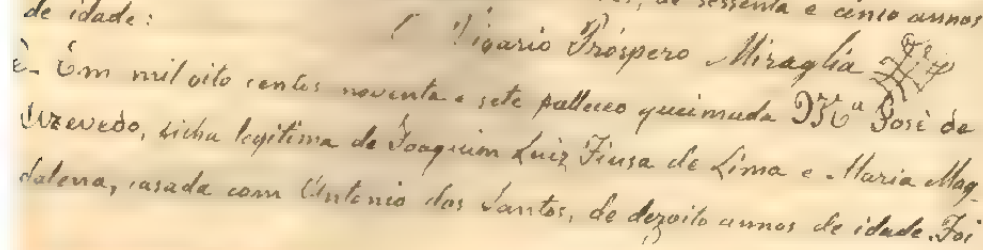 de sessenta e cinco annos
de idade:
Vigario Próspero Miraglia
Em mil oito centos noventa e sete falleceo queimada Mª José de
Azevedo, filha legitima de Joaquim Luiz Fiusa de Lima e Maria Mag-
dalena, casada com Antonio dos Santos, de dezoito annos de idade. Foi